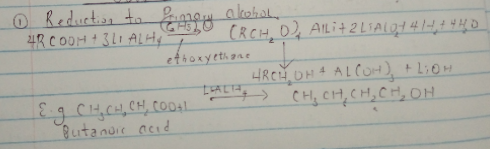 ① Reduction to Primary alcohol
4RCOOH + 3LiAlH4 (C2H5)2O (RCH2O)4 AlLi + 2LiAlO2 + 4H2 + 4H2O
ethoxyethane
4RCH2OH + Al(OH)3 + LiOH
E.g CH3CH2CH2COOH LiAlH4 CH3CH2CH2CH2OH
Butanoic acid